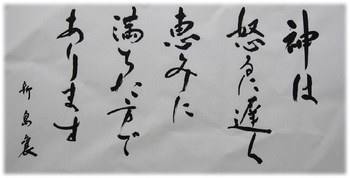 神は
怒るに遅く
恵みに
満ちた方で
あります
新島襄